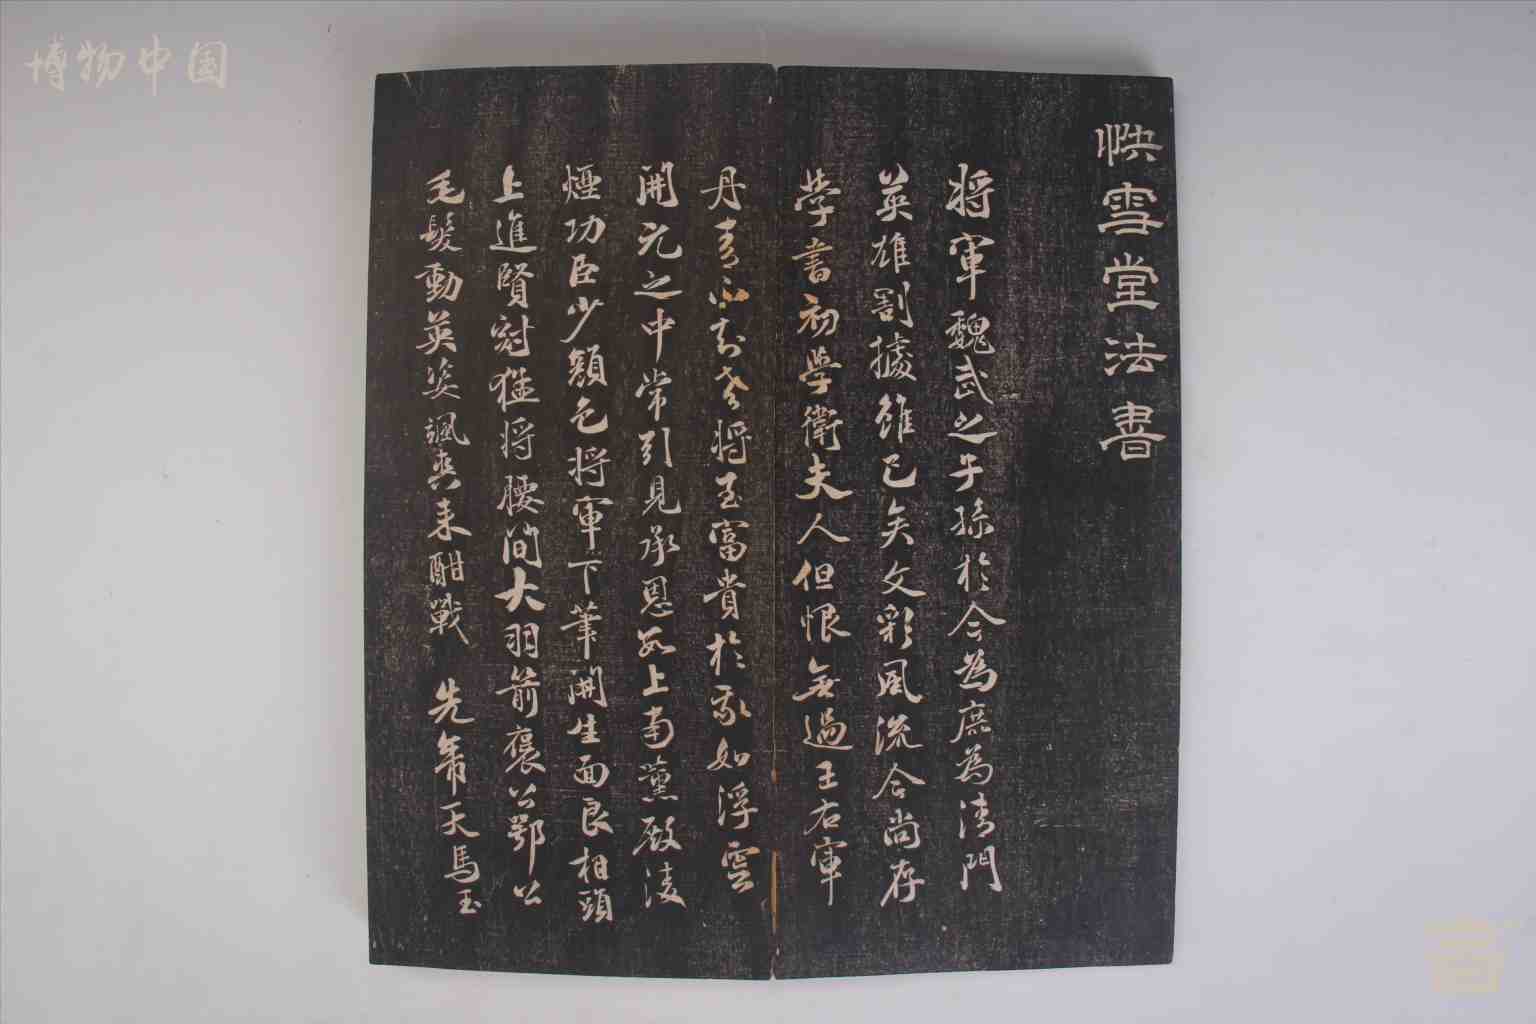 博物中国
快雪堂法書
将軍魏武之子孫於今為庶為清門
英雄割據雖已矣文彩風流今尚存
学書初學衛夫人但恨無過王右軍
丹青不知老将至富貴於我如浮雲
開元之中常引見承恩數上南薰殿淩
煙功臣少顏色将軍下筆開生面良相頭
上進賢冠猛将腰間大羽箭褒公鄂公
毛髮動英姿颯爽来酣戰 先帝天馬玉